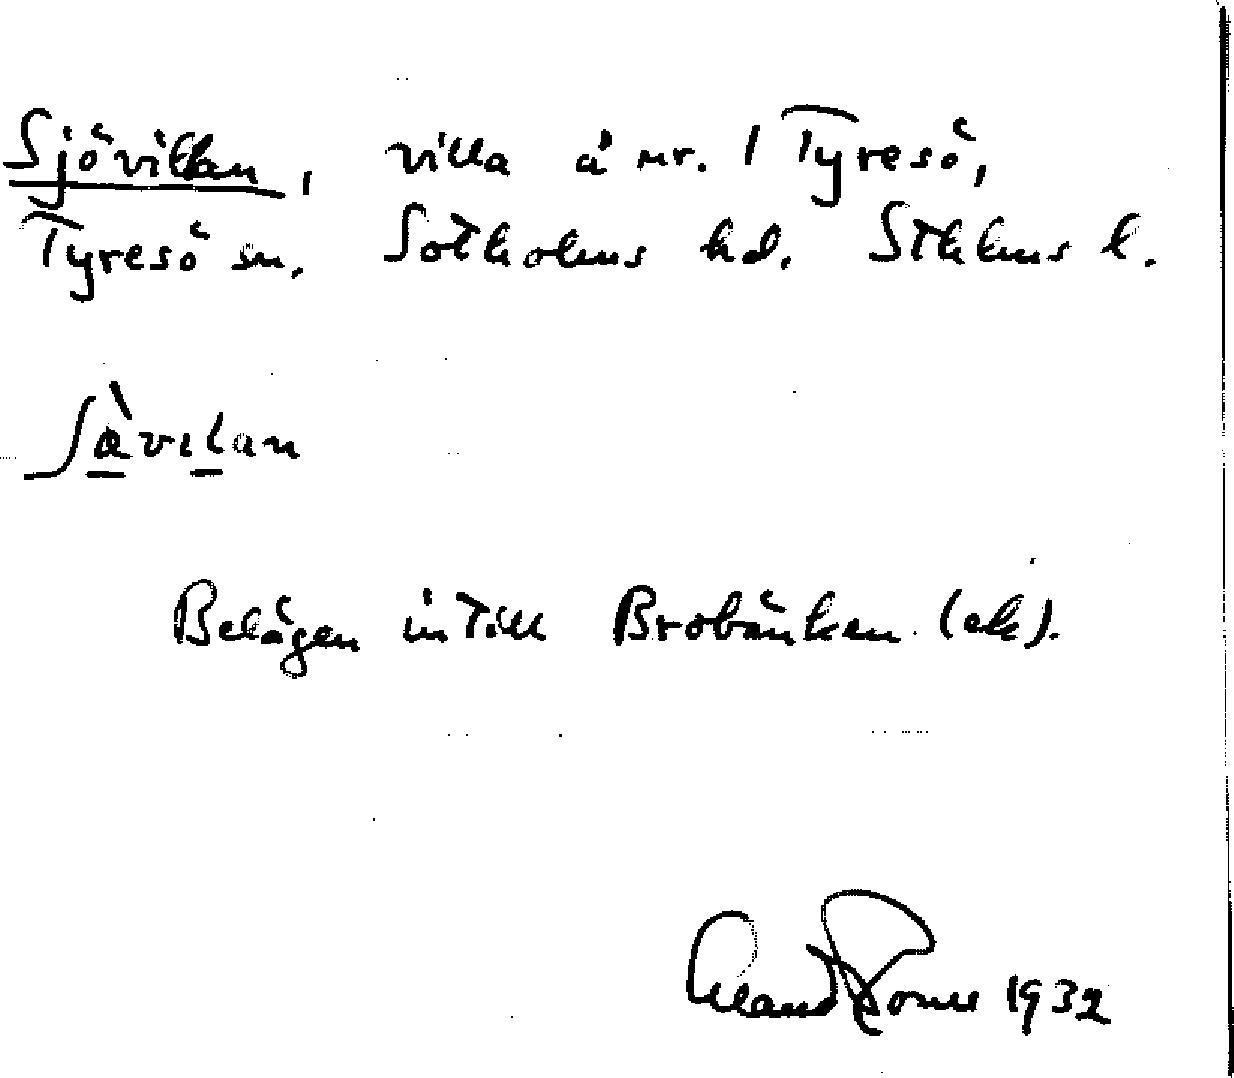 Sjövillan, villa å nr. 1 Tyresö,
Tyresö sn. Sotholms hd. Sthlms l.
Belägen intill Brobänken (ek).
1932